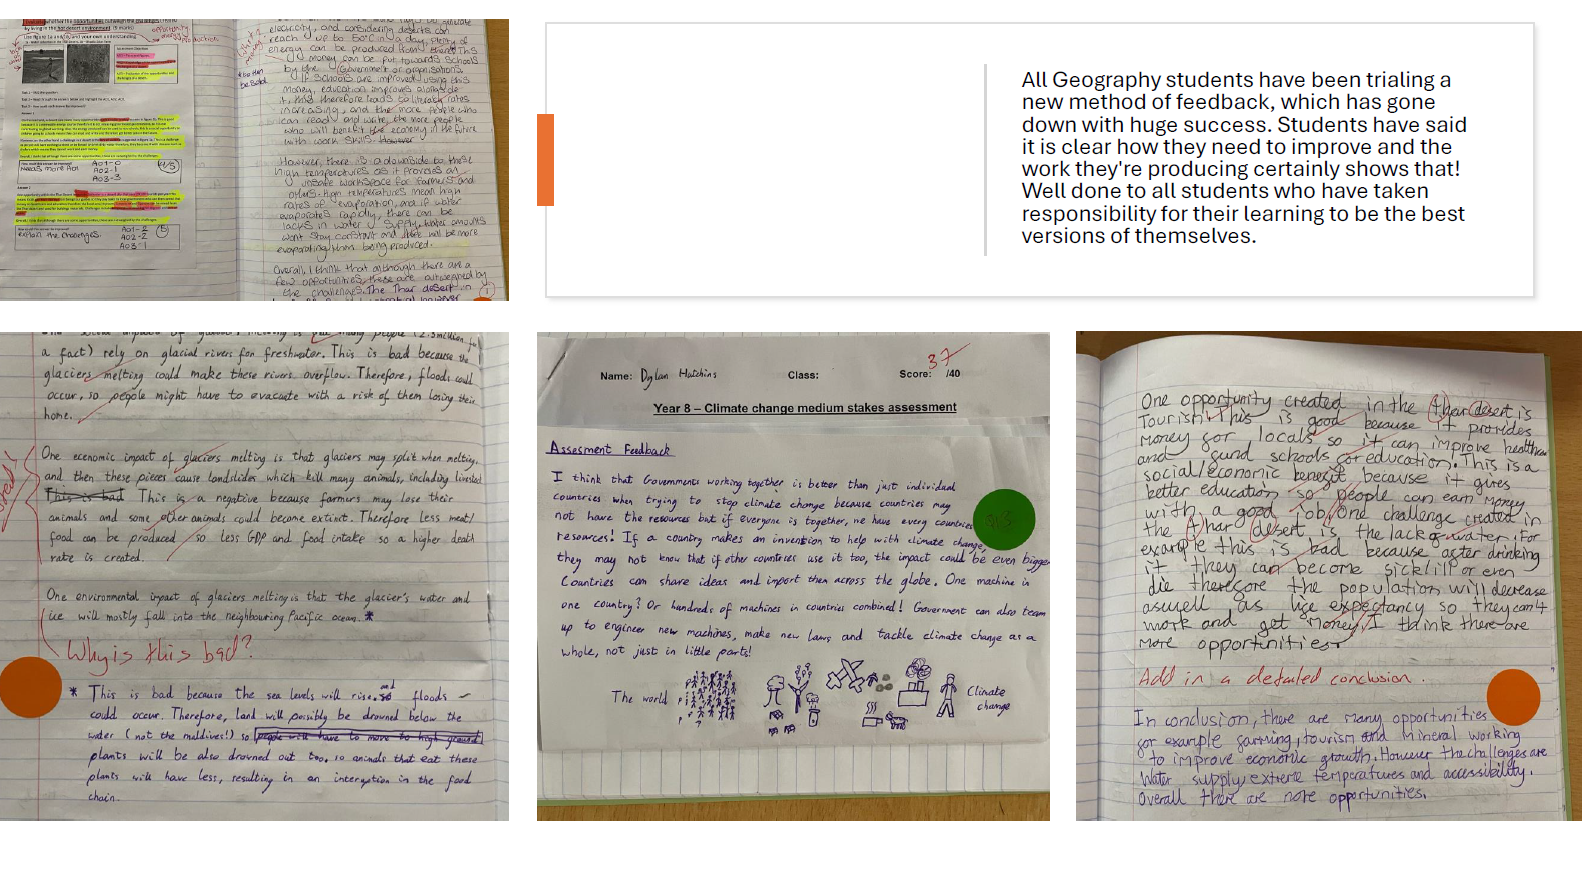 All Geography students have been trialing a
new method of feedback, which has gone
down with huge success. Students have said
it is clear how they need to improve and the
work they're producing certainly shows that!
Well done to all students who have taken
responsibility for their learning to be the best
versions of themselves.
by living in the hot desert environment.
Use figure 1a and your own understanding
Needs more AO1
AO1-0
AO2-1
AO3-3
explain the challenges.
AO1-2
AO2-2
AO3-1
electricity, and considering deserts can
reach up to 50°C in a day, plenty of
energy can be produced from there. This
money can be put towards schools
by the Government or organisations.
If schools are improved using this
money, education improves alongside
it, this therefore leads to literacy rates
increasing, and the more people who
can read and write, the more people
who will benefit the economy in the future
with work skills. However
However, there is a downside to these
high temperatures as it provides an
unsafe workspace for farmers and
others. High temperatures mean high
rates of evaporation, and if water
evaporates rapidly, there can be
lacks in water supply. Water amounts
wont stay constant and there will be more
evaporating than being produced.
Overall, I think that although there are a
few opportunities, these are outweighed by
the challenges. The Thar desert in
a fact) rely on glacial rivers for freshwater. This is bad because the
glaciers melting could make these rivers overflow. Therefore, floods could
occur, so people might have to evacuate with a risk of them losing their
home.
One economic impact of glaciers melting is that glaciers may split when melting,
and then these pieces cause landslides which kill many animals, including livestock
This is bad This is a negative because farmers may lose their
animals and some other animals could become extinct. Therefore less meat/
food can be produced so less GDP and food intake so a higher death
rate is created.
One environmental impact of glaciers melting is that the glacier's water and
ice will mostly fall into the neighbouring Pacific ocean. *
Why is this bad?
* This is bad because the sea levels will rise. so and floods
could occur. Therefore, land will possibly be drowned below the
water (not the maldives!) so people will have to move to high ground
plants will be also drowned out too, so animals that eat these
plants will have less, resulting in an interuption in the food
chain.
Name: Dylan Hutchins Class: Score: 37 /40
Year 8 – Climate change medium stakes assessment
Assesment Feedback
I think that Governments working together is better than just individual
countries when trying to stop climate change because countries may
not have the resources but if everyone is together, we have every countries
resources! If a country makes an invention to help with climate change,
they may not know that if other countries use it too, the impact could be even bigger
Countries can share ideas and inport then across the globe. One machine in
one country? Or hundreds of machines in countries combined! Government can also team
up to engineer new machines, make new laws and tackle climate change as a
whole, not just in little parts!
The world
Climate
change
One opportunity created in the thar desert is
Tourism. This is good because it provides
money for locals so it can improve healthcare
and fund schools for education. This is a
social/economic benefit because it gives
better education so people can earn money
with a good job. One challenge created in
the Thar desert is the lack of water. For
example this is bad because after drinking
it they can become sick/ill or even
die therefore the population will decrease
aswell as life expectancy so they can't
work and get money. I think there are
more opportunities.
Add in a detailed conclusion.
In conclusion, there are many opportunities
for example farming, tourism and Mineral working
to improve economic growth. However the challenges are
Water supply extreme temperatures and accessibility.
Overall there are more opportunities.